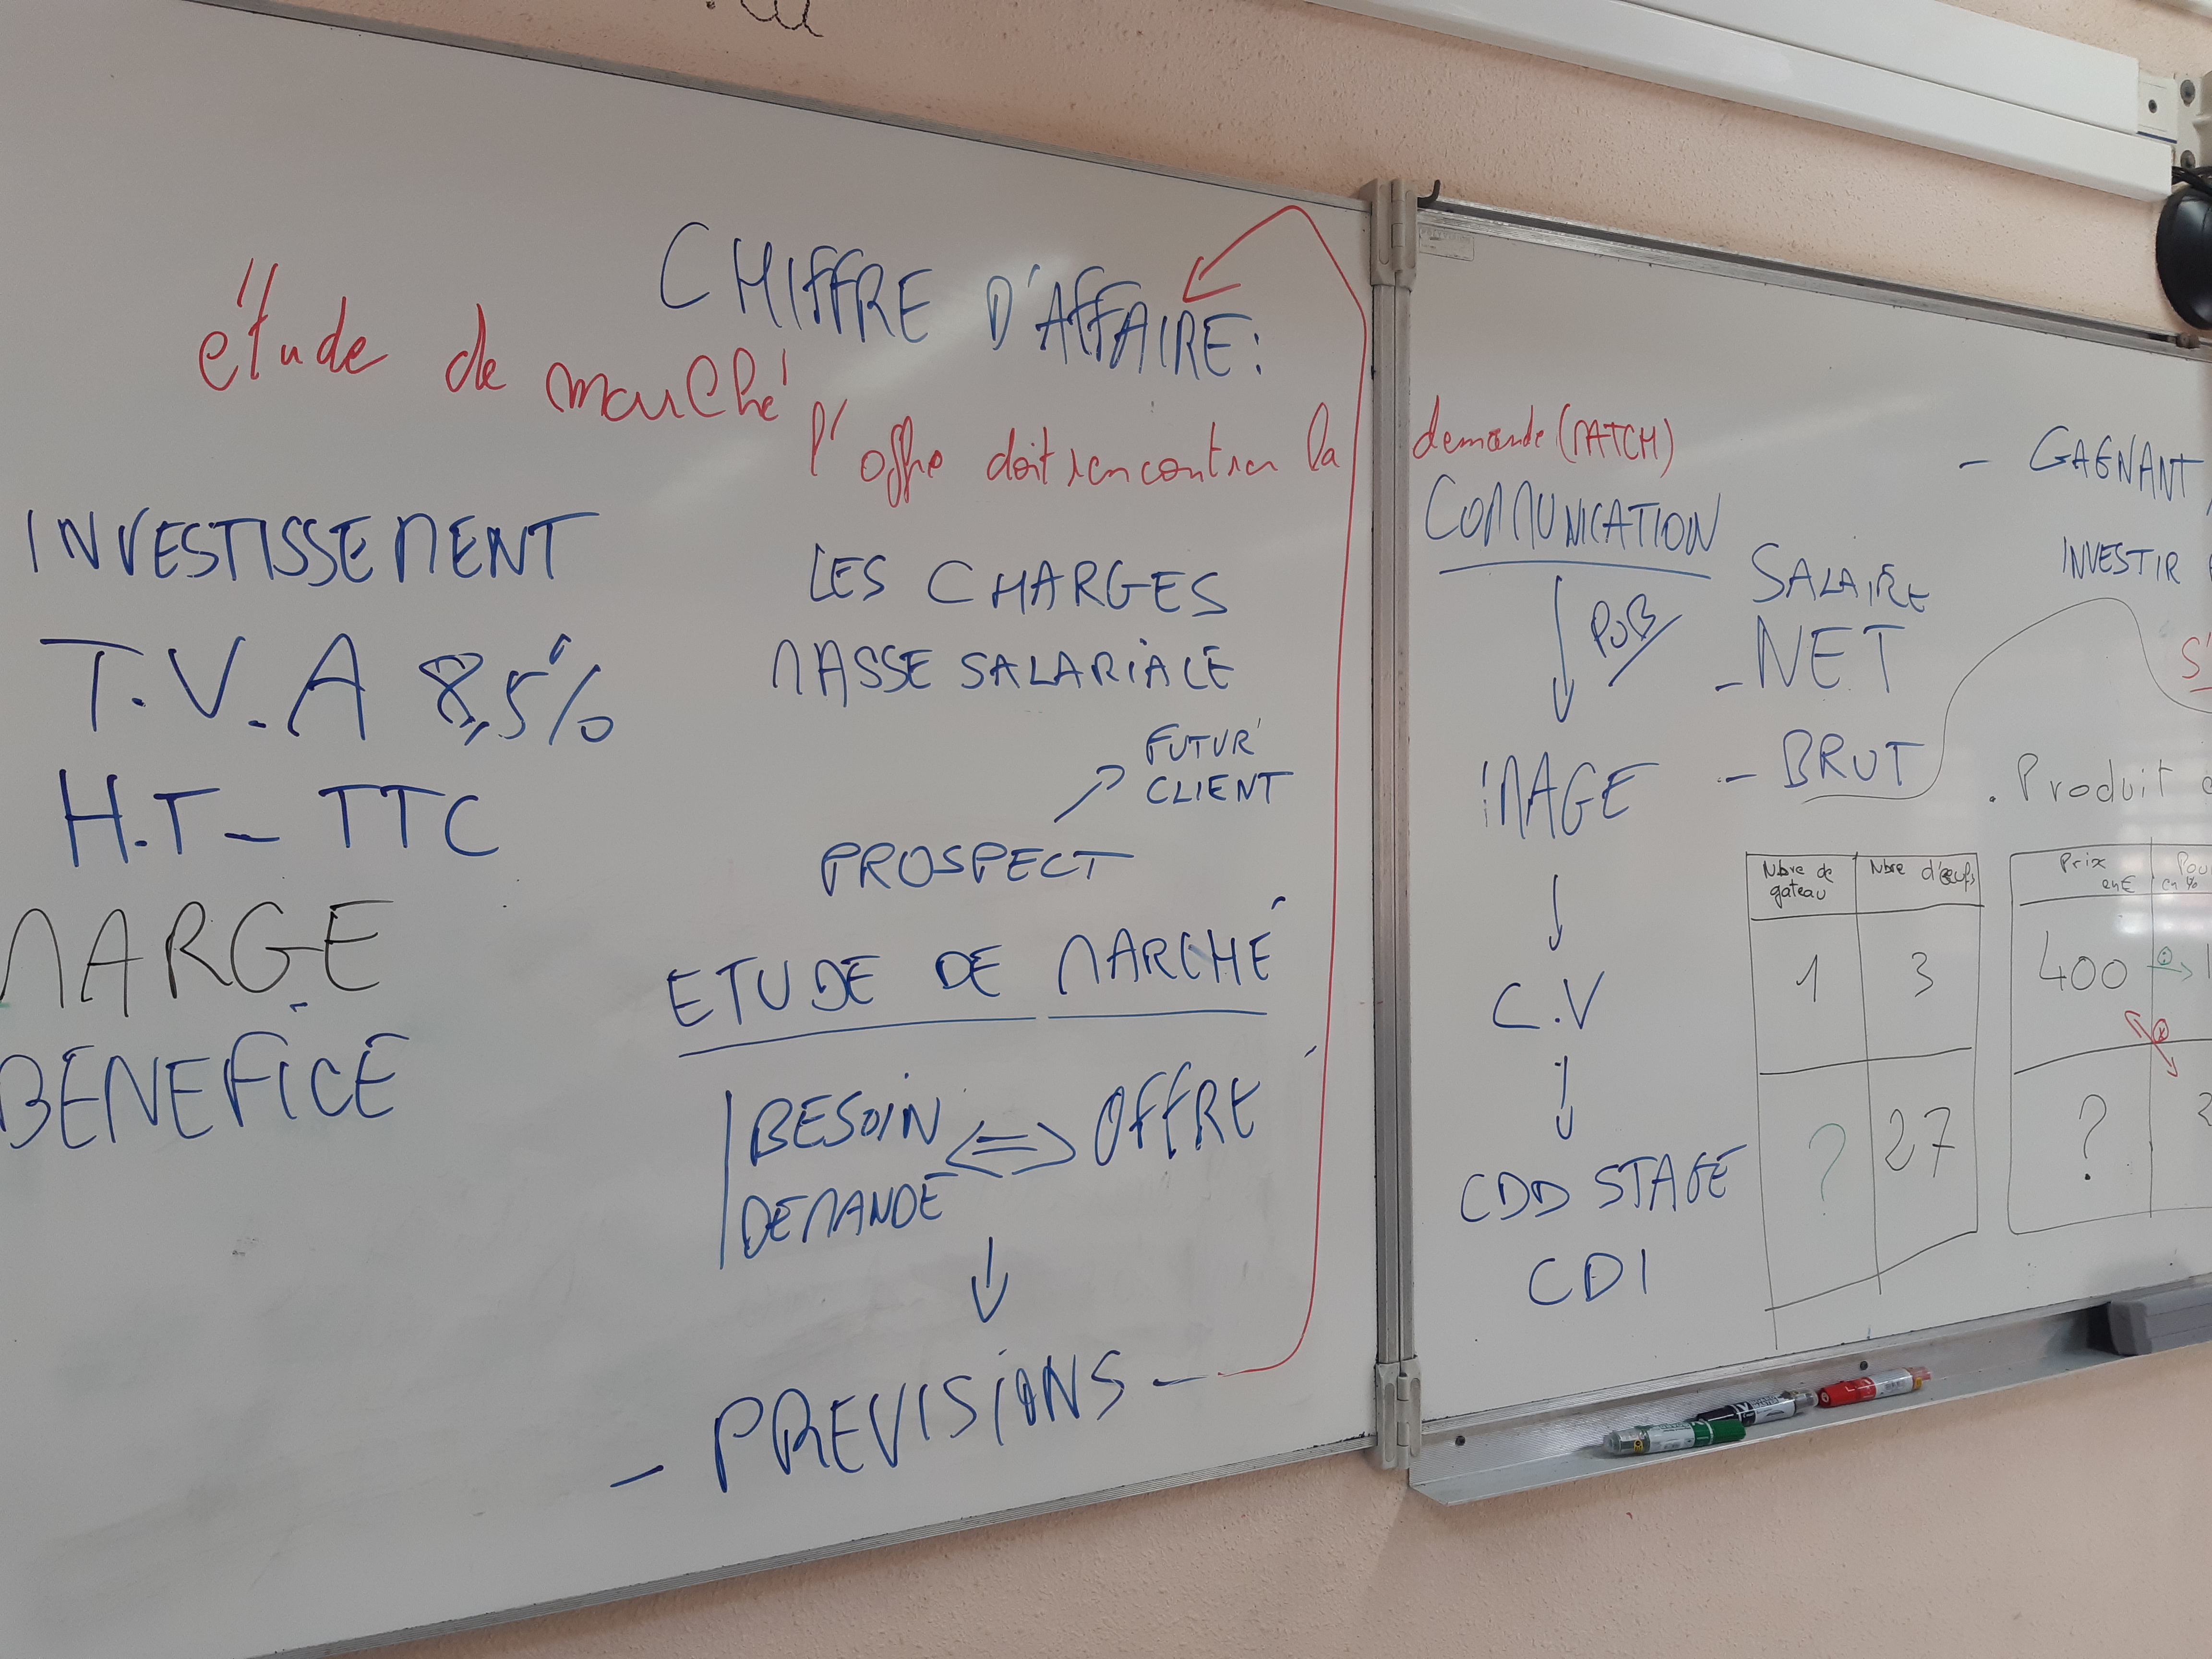 CHIFFRE D'AFFAIRE :
étude de marché
l'offre doit rencontrer la demande (MATCH)
INVESTISSEMENT
T.V.A 8,5%
H.T - TTC
MARGE
BENEFICE
LES CHARGES
MASSE SALARIALE
FUTUR
CLIENT
PROSPECT
ETUDE DE MARCHÉ
BESOIN <=> OFFRE
DEMANDE
- PREVISIONS -
COMMUNICATION
PUB
IMAGE
C.V
CDD STAGE
CDI
SALAIRE
- NET
- BRUT
- GAGNANT
INVESTIR
S'
. Produit
Nbre de gateau Nbre d'œufs
1 3
? 27
Prix en €
en %
400
?